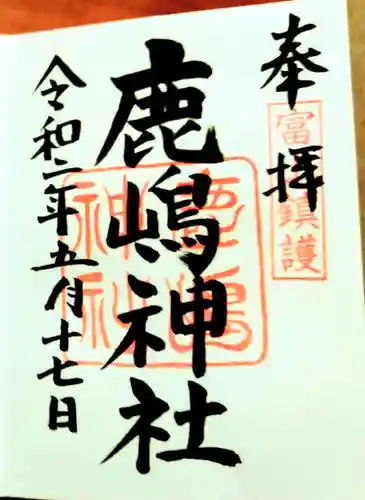 奉拝
富鎮護
鹿嶋神社
鹿嶋神社
令和二年五月十七日